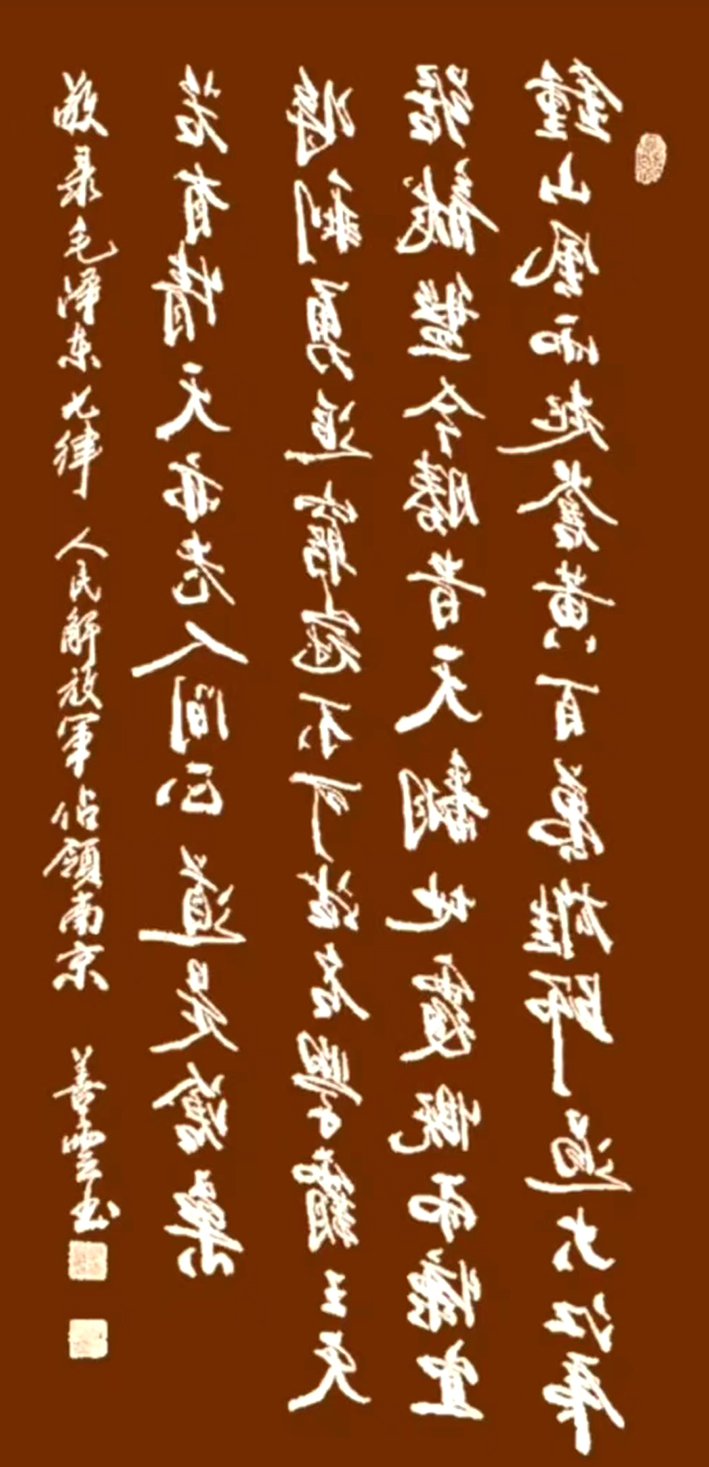 鍾山風雨起蒼黃百萬雄師過大江虎
踞龍盤今勝昔天翻地覆慨而慷宜
將剩勇追窮寇不可沽名學霸王天
若有情天亦老人間正道是滄桑
敬录毛澤东七律 人民解放軍佔領南京 善雲书